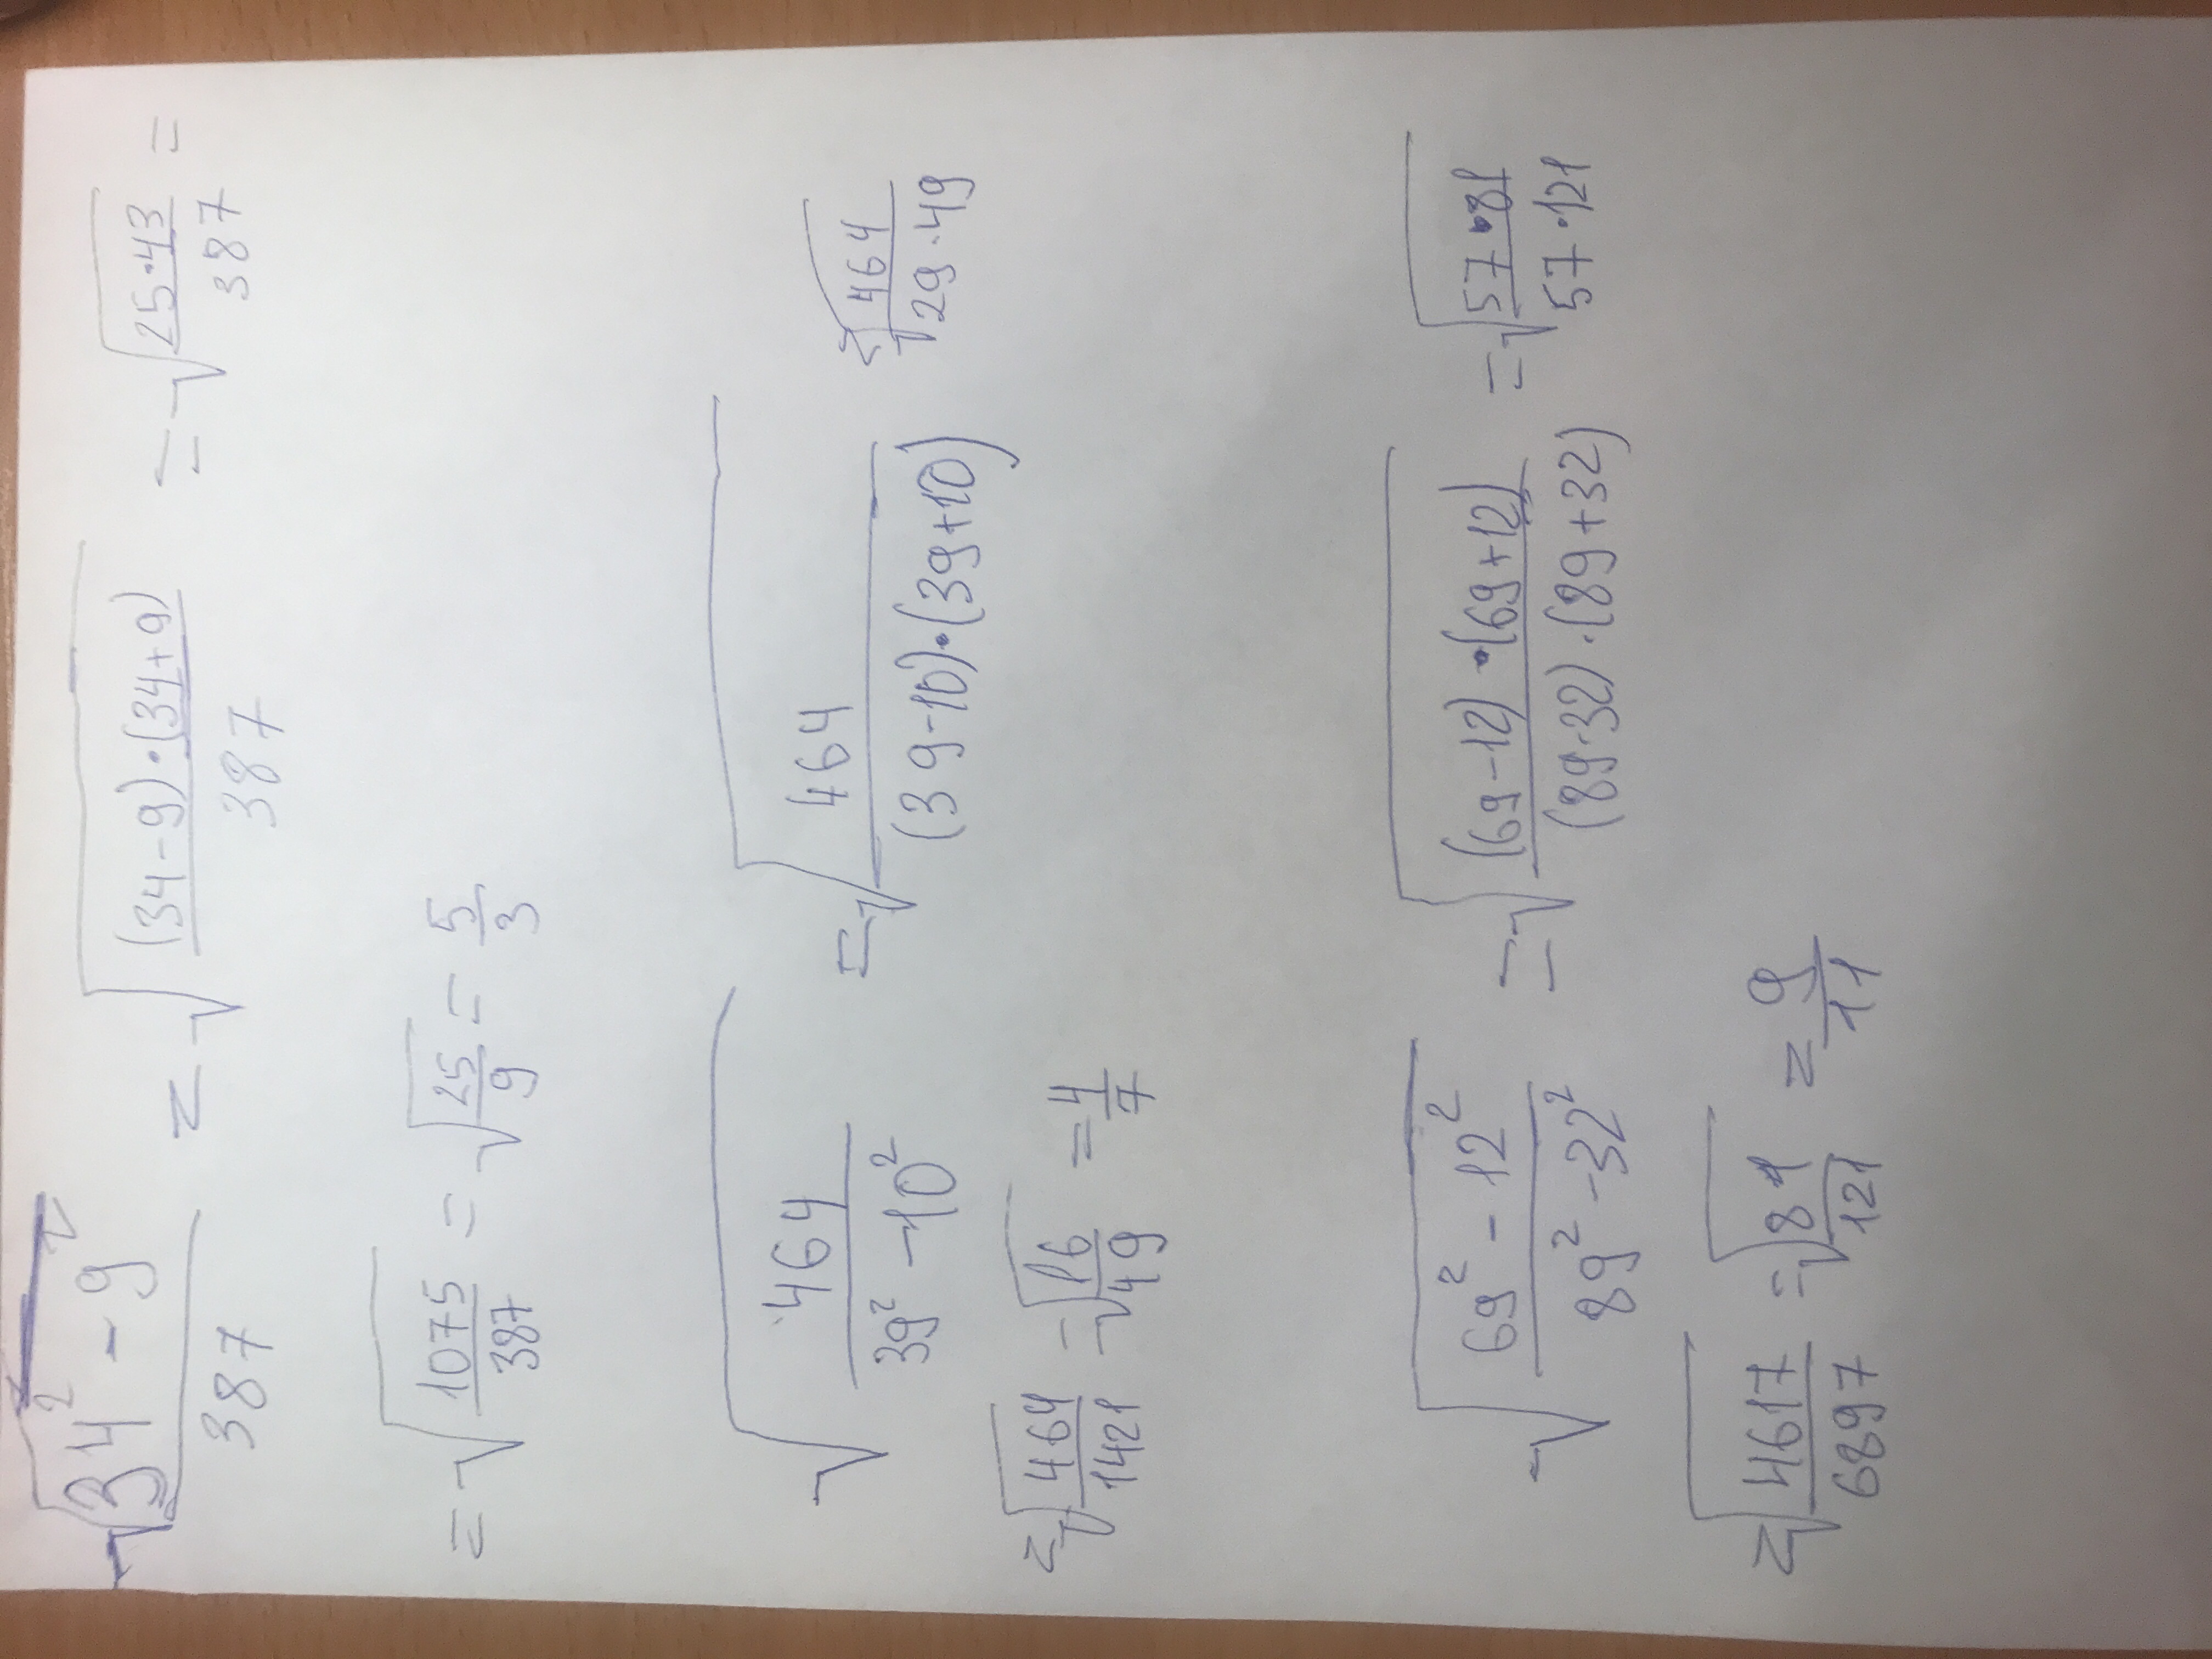 √((34² - 9²)/387) = √(((34-9)·(34+9))/387) = √((25·43)/387) =
= √(1075/387) = √(25/9) = 5/3
√(464/(39² - 10²)) = √(464/((39-10)·(39+10))) = √(464/(29·49))
= √(464/1421) = √(16/49) = 4/7
√((69² - 12²)/(89² - 32²)) = √(((69-12)·(69+12))/((89-32)·(89+32))) = √((57·81)/(57·121))
= √(4617/6897) = √(81/121) = 9/11